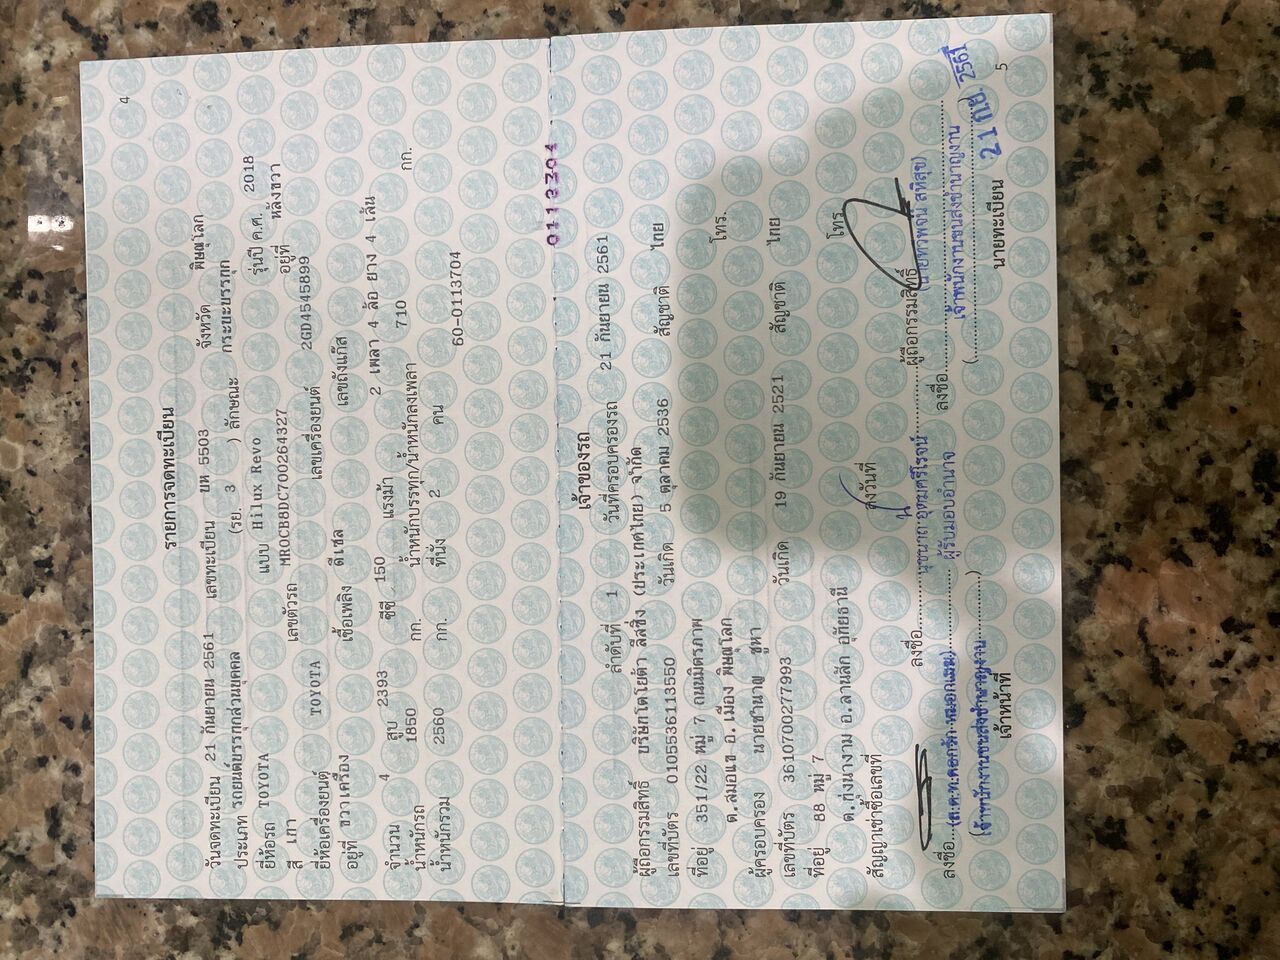 4
รายการจดทะเบียน
วันจดทะเบียน 21 กันยายน 2561 เลขทะเบียน บห 5503 จังหวัด พิษณุโลก
ประเภท รถยนต์บรรทุกส่วนบุคคล (รย. 3 ) ลักษณะ กระบะบรรทุก
ยี่ห้อรถ TOYOTA แบบ Hilux Revo รุ่นปี ค.ศ. 2018
สี เทา เลขตัวรถ MR0CB8DC700264327 อยู่ที่ หลังขวา
ยี่ห้อเครื่องยนต์ TOYOTA เลขเครื่องยนต์ 2GD4545899
อยู่ที่ ขวาเครื่อง เชื้อเพลิง ดีเซล เลขถังแก๊ส
จำนวน 4 สูบ 2393 ซีซี 150 แรงม้า 2 เพลา 4 ล้อ ยาง 4 เส้น
น้ำหนักรถ 1850 กก. น้ำหนักบรรทุก/น้ำหนักลงเพลา 710 กก.
น้ำหนักรวม 2560 กก. ที่นั่ง 2 คน
60-0113704
เจ้าของรถ
ลำดับที่ 1 วันที่ครอบครองรถ 21 กันยายน 2561
ผู้ถือกรรมสิทธิ์ บริษัทโตโยต้า ลีสซิ่ง (ประเทศไทย) จำกัด
เลขที่บัตร 0105536113550 วันเกิด 5 ตุลาคม 2536 สัญชาติ ไทย
ที่อยู่ 351/22 หมู่ 7 ถนนมิตรภาพ
ต.สมอแข อ.เมือง พิษณุโลก โทร.
ผู้ครอบครอง นายชำนาญ ชูหา
เลขที่บัตร 3610700277993 วันเกิด 19 กันยายน 2521 สัญชาติ ไทย
ที่อยู่ 88 หมู่ 7
ต.ทุ่งนางาม อ.ลานสัก อุทัยธานี โทร.
สัญญาเช่าซื้อเลขที่ ลงวันที่
ลงชื่อ ผู้ถือกรรมสิทธิ์
ผู้รับมอบอำนาจ
ลงชื่อ ลงชื่อ
เจ้าพนักงานขนส่งชำนาญงาน
(เจ้าพนักงานขนส่งชำนาญงาน)
เจ้าหน้าที่ นายทะเบียน
21 ก.ย. 2561
5